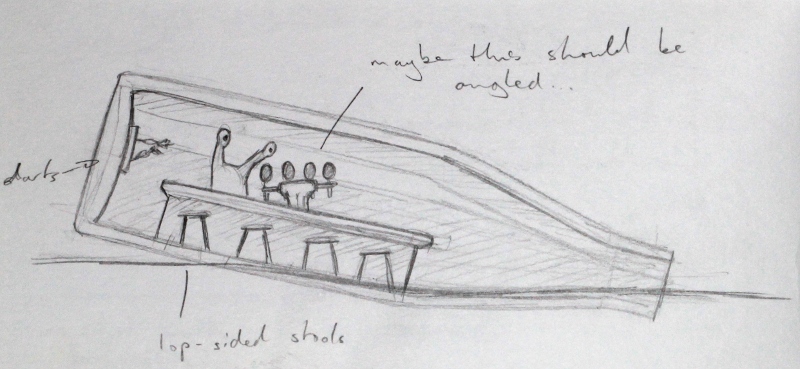 maybe this should be
angled...
darts
lop-sided stools